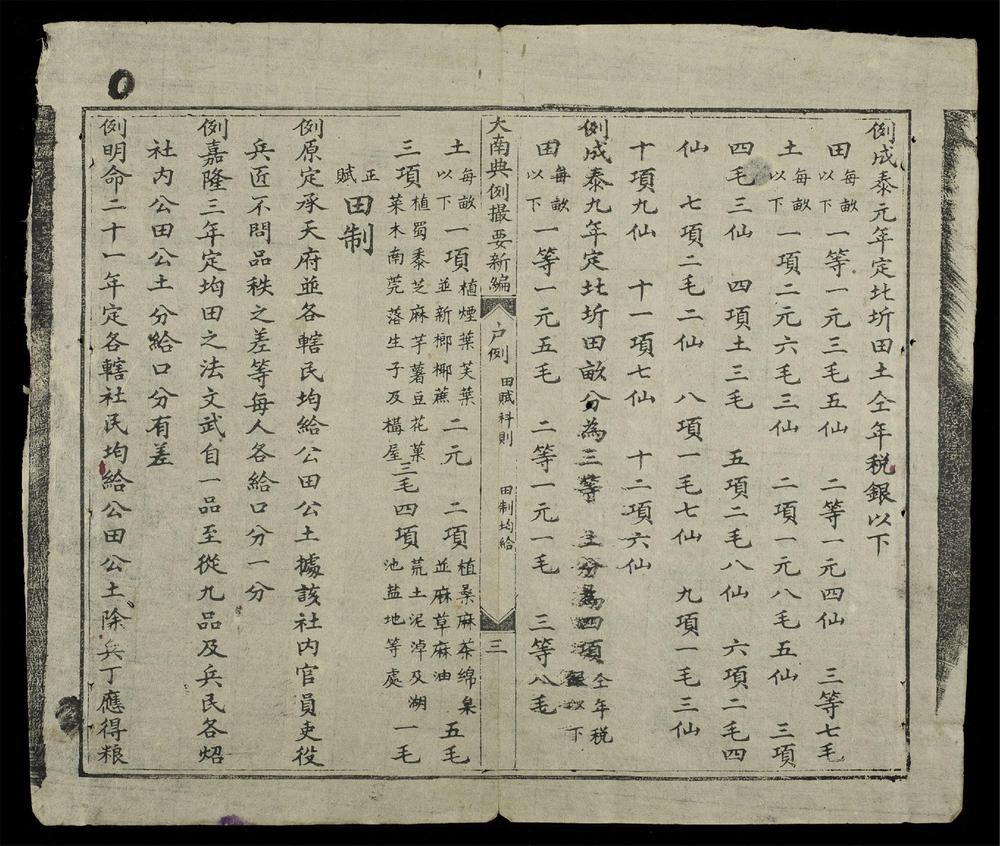 例成泰元年定北圻田土仝年税銀以下
田每畝以下一等一元三毛五仙 二等一元四仙 三等七毛
土每畝以下一項二元六毛三仙 二項一元八毛五仙 三項
四毛三仙 四項土三毛 五項二毛八仙 六項二毛四
仙 七項二毛二仙 八項一毛七仙 九項一毛三仙
十項九仙 十一項七仙 十二項六仙
例成泰九年定北圻田畝分為三等 土分為四項仝年税銀以下
田每畝以下一等一元五毛 二等一元一毛 三等八毛
大南典例撮要新編 户例 田賦科則 田制均給 三
土每畝以下一項植煙葉芙葉並新榔椰蔗二元 二項植桑麻茶綿臬並麻草麻油五毛
三項植蜀黍芝麻芋薯豆花菓菜木南莞落生子及構屋三毛四項荒土泥淖及湖池盐地等處一毛
正賦田制
例原定承天府並各轄民均給公田公土據該社内官員吏役
兵匠不問品秩之差等每人各給口分一分
例嘉隆三年定均田之法文武自一品至從九品及兵民各炤
社内公田公土分給口分有差
例明命二十一年定各轄社民均給公田公土除兵丁應得粮